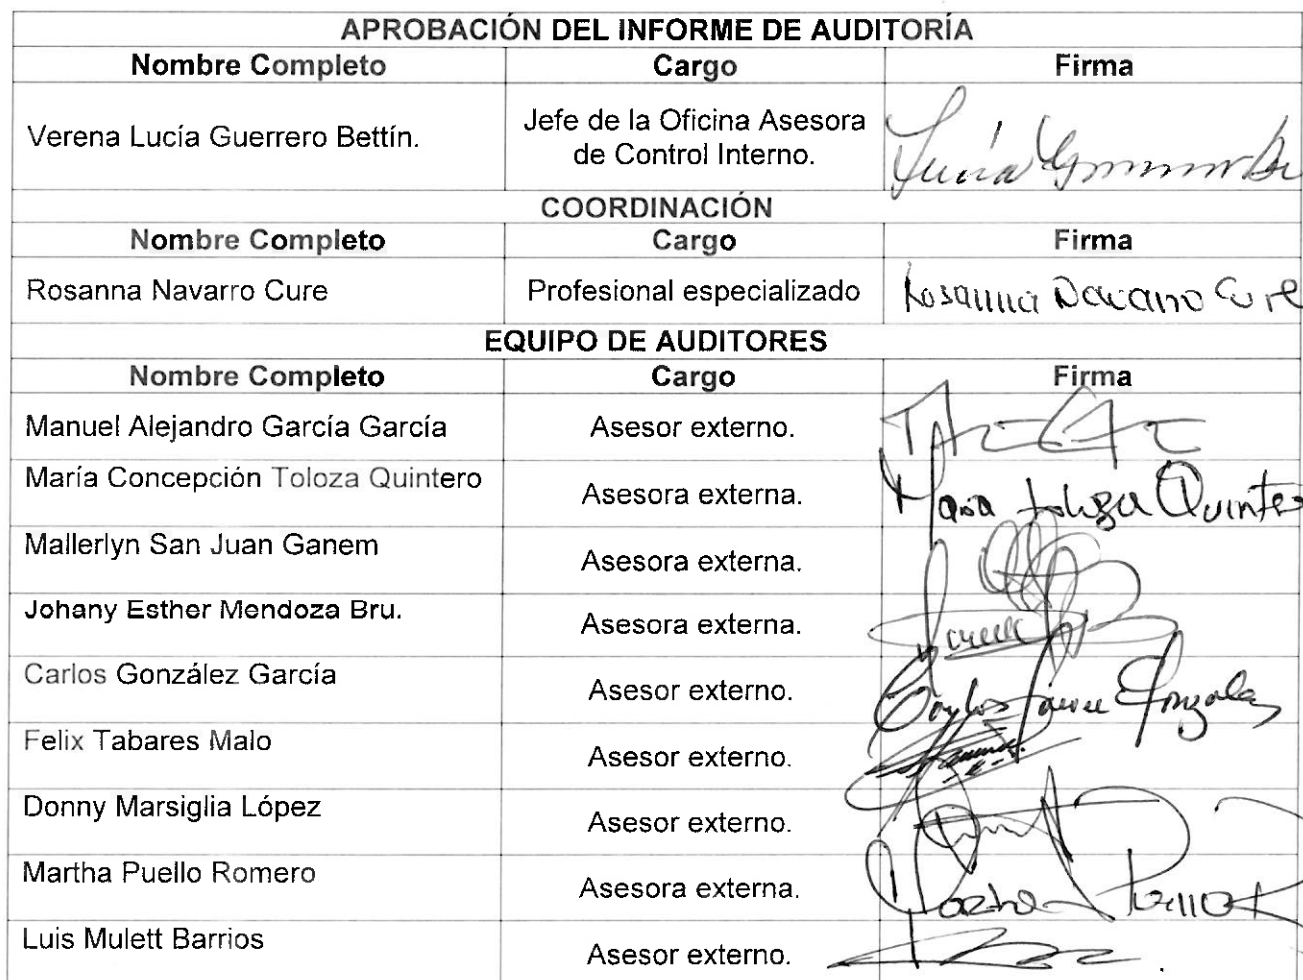 APROBACIÓN DEL INFORME DE AUDITORÍA
Nombre Completo Cargo Firma
Verena Lucía Guerrero Bettín. Jefe de la Oficina Asesora
de Control Interno. Lucía
COORDINACIÓN
Nombre Completo Cargo Firma
Rosanna Navarro Cure Profesional especializado Rosanna Navarro Cure
EQUIPO DE AUDITORES
Nombre Completo Cargo Firma
Manuel Alejandro García García Asesor externo.
María Concepción Toloza Quintero Asesora externa. Maria Toloza Quintero
Mallerlyn San Juan Ganem Asesora externa.
Johany Esther Mendoza Bru. Asesora externa.
Carlos González García Asesor externo. Carlos Javier González
Felix Tabares Malo Asesor externo.
Donny Marsiglia López Asesor externo.
Martha Puello Romero Asesora externa. Martha
Luis Mulett Barrios Asesor externo.